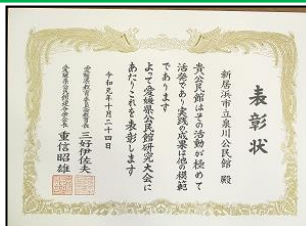 表彰状
新居浜市立泉川公民館 殿
貴公民館はその活動が極めて
活発であり実践の成果は他の模範
であります
よって愛媛県公民館研究大会に
あたりこれを表彰します
令和元年十月二十四日
愛媛県教育委員会教育長 三好伊佐夫
愛媛県公民館連合会会長 重信昭雄